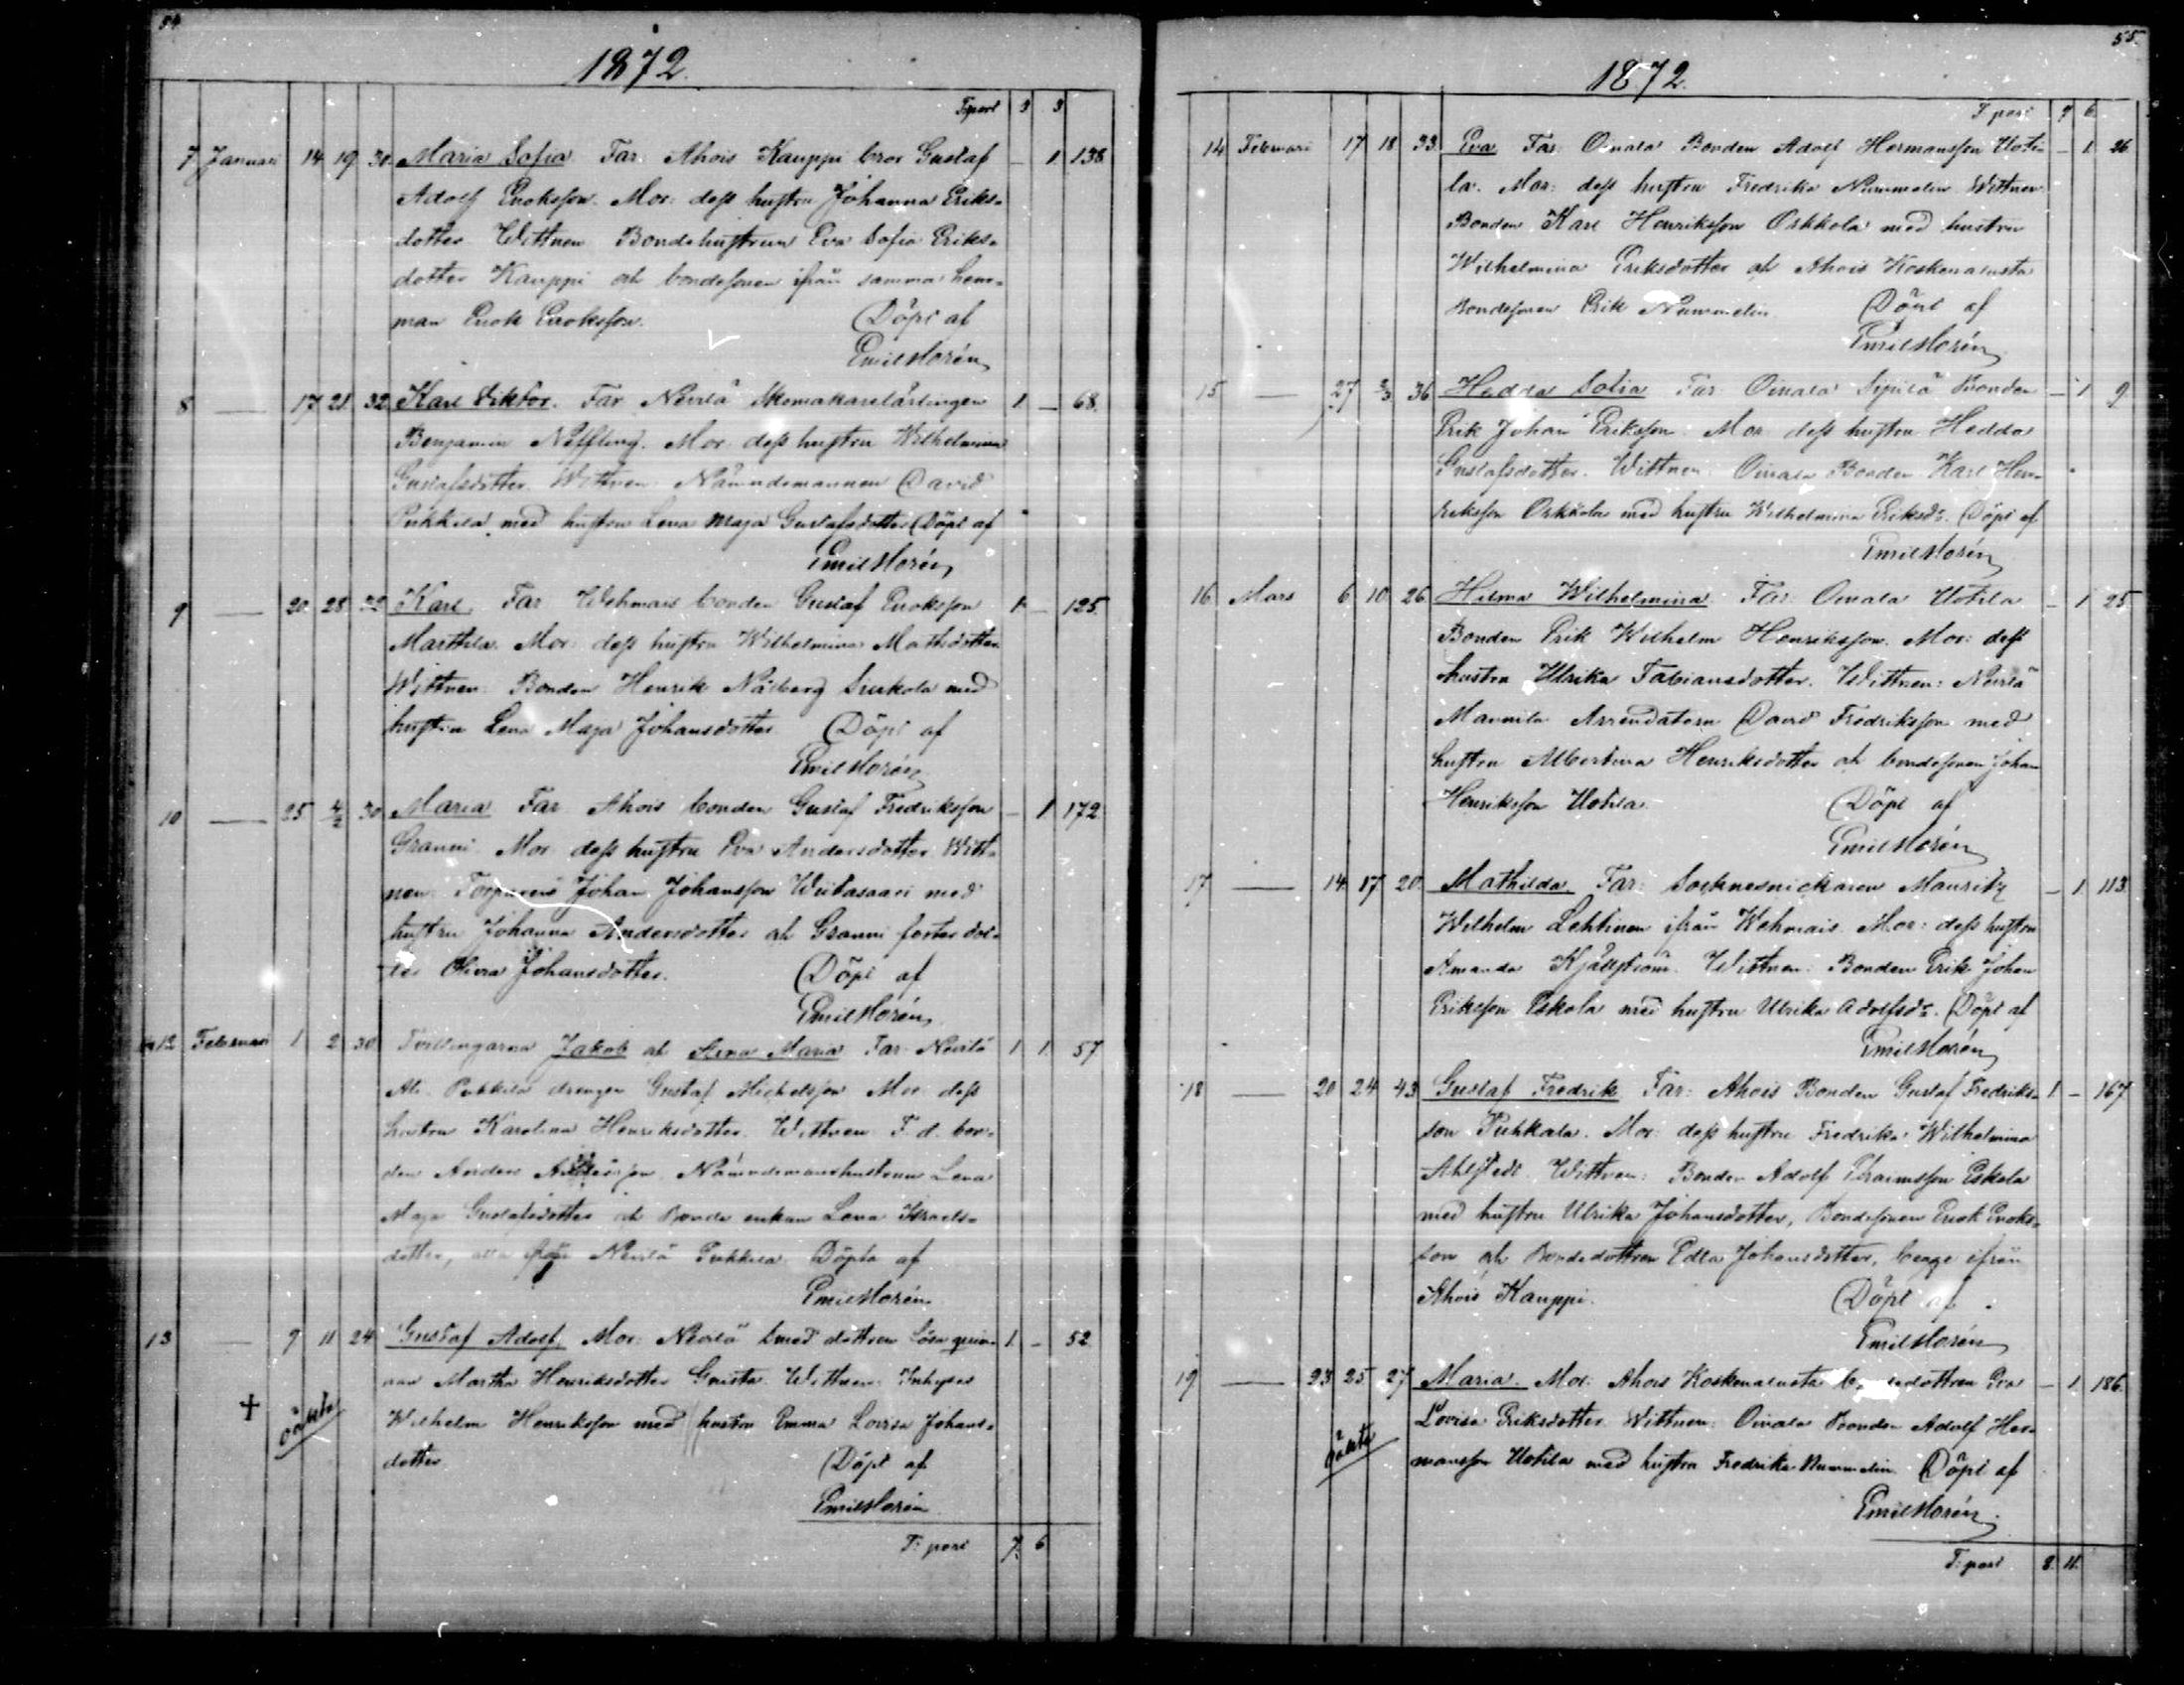 54
1872.
T:port 3 3
7 Januari 14 19 30 Maria Sofia Far: Ahois Kauppi bror Gustaf – 1 138
Adolf Enoksson. Mor: dess hustru Johanna Eriks-
dotter Wittnen Bondehustrun Eva Sofia Eriks-
dotter Kauppi och bondesonen ifrån samma hem-
man Enok Enoksson. Döpt af
Emil Morén
8 — 17 21 32 Karl Viktor. Far Nevilä Skomakarelärlingen 1 – 68.
Benjamin Mor: dess hustru Wilhelmina
Gustafsdotter. Wittnen Nämndemannen David
Pukkila med hustru Lena Maja Gustafsdotter Döpt af
Emil Morén
9 — 20 28 32 Karl. Far Wehmais bonden Gustaf Enoksson 1 – 125.
Marttila. Mor: dess hustru Wilhelmina Mathsdotter
Wittnen: Bonden Henrik Siukola med
hustru Lena Maja Johansdotter Döpt af
Emil Morén
10 — 25 4/2 30 Maria Far Ahois bonden Gustaf Fredriksson – 1 172
Granni Mor: dess hustru Eva Andersdotter Witt-
nen: Torparen Johan Johansson Wiitasaari med
hustru Johanna Andersdotter och Granni foster dot-
ter Olivia Johansdotter. Döpt af
Emil Morén
12 Februari 1 2 30 Tvillingarna Jakob och Stena Maria Far: Nevilä 1 1 57
Ali Pukkila drengen Gustaf Michelsson Mor: dess
hustru Karolina Henriksdotter. Wittnen F. d. bon-
den Anders Nämndemanshustrun Lena
Maja Gustafsdotter och Bonde enkan Lena Israels-
dotter, alla från Nevilä Pukkila. Döpta af
Emil Morén
13 — 9 11 24 Gustaf Adolf. Mor: Nevilä smed dottren lösa qvin- 1 – 52.
nan Martha Henriksdotter Gnista. Wittnen: Inhyses
+ oäkta Wilhelm Henriksson med hustru Emma Lovisa Johans-
dotter Döpt af
Emil Morén
T: port 7. 6
55.
1872.
T port 7 6
14 Februari 17 18 33 Eva Far: Oinala Bonden Adolf Hermansson Uoti- – 1 26
la. Mor: dess hustru Fredrika Nummelin Wittnen
Bonden Karl Henriksson Orkkola med hustru
Wilhelmina Eriksdotter och Ahois Koskenalusta
Bondesonen Erik Nummelin Döpt af
Emil Morén
15 — 27 2/3 36 Hedda Sofia Far: Oinala Sipilä Bonden – 1 9
Erik Johan Eriksson. Mor dess hustru Hedda
Gustafsdotter. Wittnen: Oinala Bonden Karl Hen-
riksson Orkkola med hustru Wilhelmina Eriksdr. Döpt af
Emil Morén
16 Mars 6 10 26 Hilma Wilhelmina Far: Oinala Uotila – 1 25
Bonden Erik Wilhelm Henriksson. Mor: dess
hustru Ulrika Fabiansdotter. Wittnen: Nevilä
Mannila Arrendatorn David Fredriksson med
hustru Albertina Henriksdotter och bondesonen Johan
Henriksson Uotila. Döpt af
Emil Morén
17 — 14 17 20 Mathilda Far: Socknesnickaren Mauritz – 1 113
Wilhelm Lehtinen ifrån Wehmais. Mor: dess hustru
Amanda Kjällström. Wittnen: Bonden Erik Johan
Eriksson Eskola med hustru Ulrika Adolfsdr. Döpt af
Emil Morén
18 — 20 24 43 Gustaf Fredrik Far: Ahois Bonden Gustaf Fredriks- 1 – 167
son Puhkala. Mor: dess hustru Fredrika Wilhelmina
Ahlstedt. Wittnen: Bonden Adolf Efraimsson Eskola
med hustru Ulrika Johansdotter, Bondesonen Enok Enoks-
son och Bondedottren Edla Johansdotter, begge ifrån
Ahois Kauppi. Döpt af
Emil Morén
19 — 23 25 27 Maria Mor: Ahois Koskenalusta bondedottren Eva – 1 186.
oäkta Lovisa Eriksdotter. Wittnen: Oinala Bonden Adolf Her-
mansson Uotila med hustru Fredrika Nummelin. Döpt af
Emil Morén
T: port 8. 11.